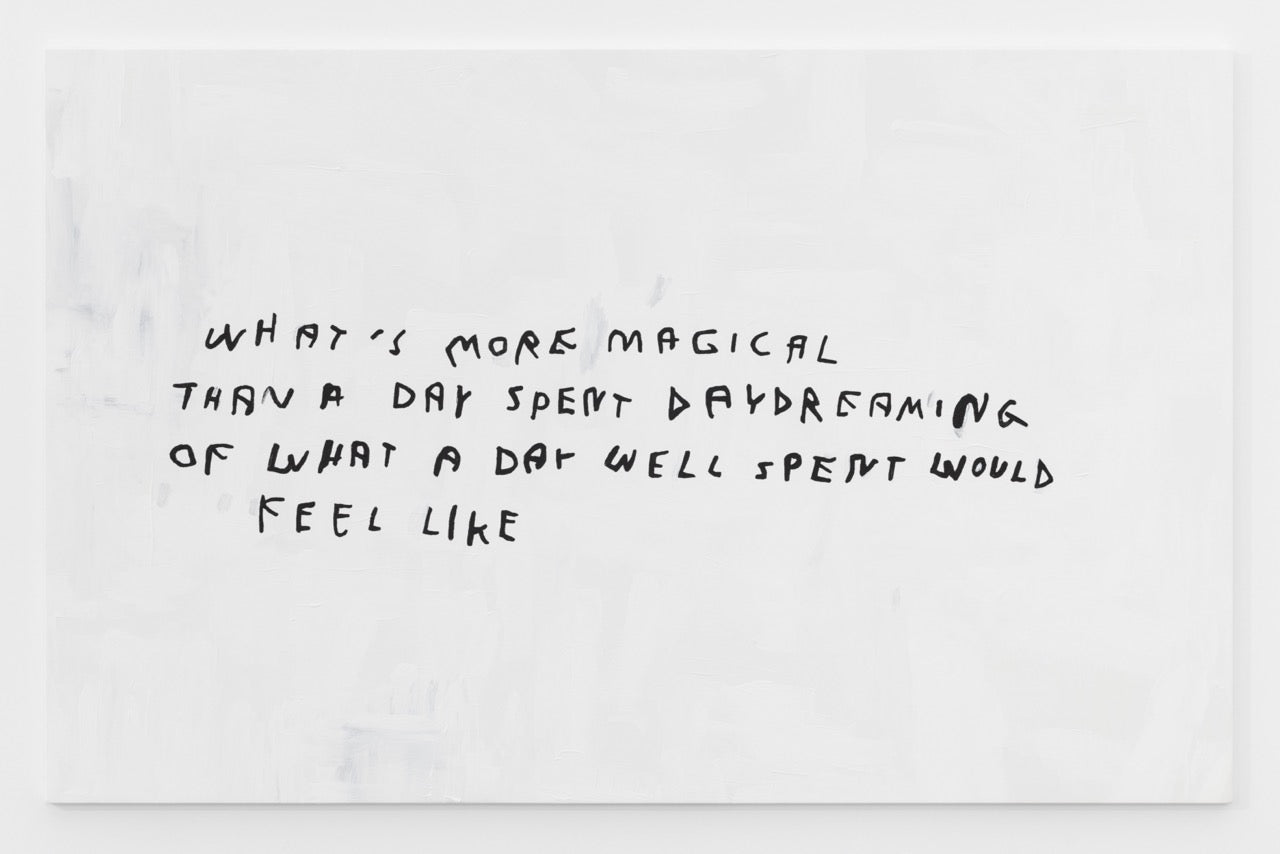 WHAT'S MORE MAGICAL
THAN A DAY SPENT DAYDREAMING
OF WHAT A DAY WELL SPENT WOULD
FEEL LIKE